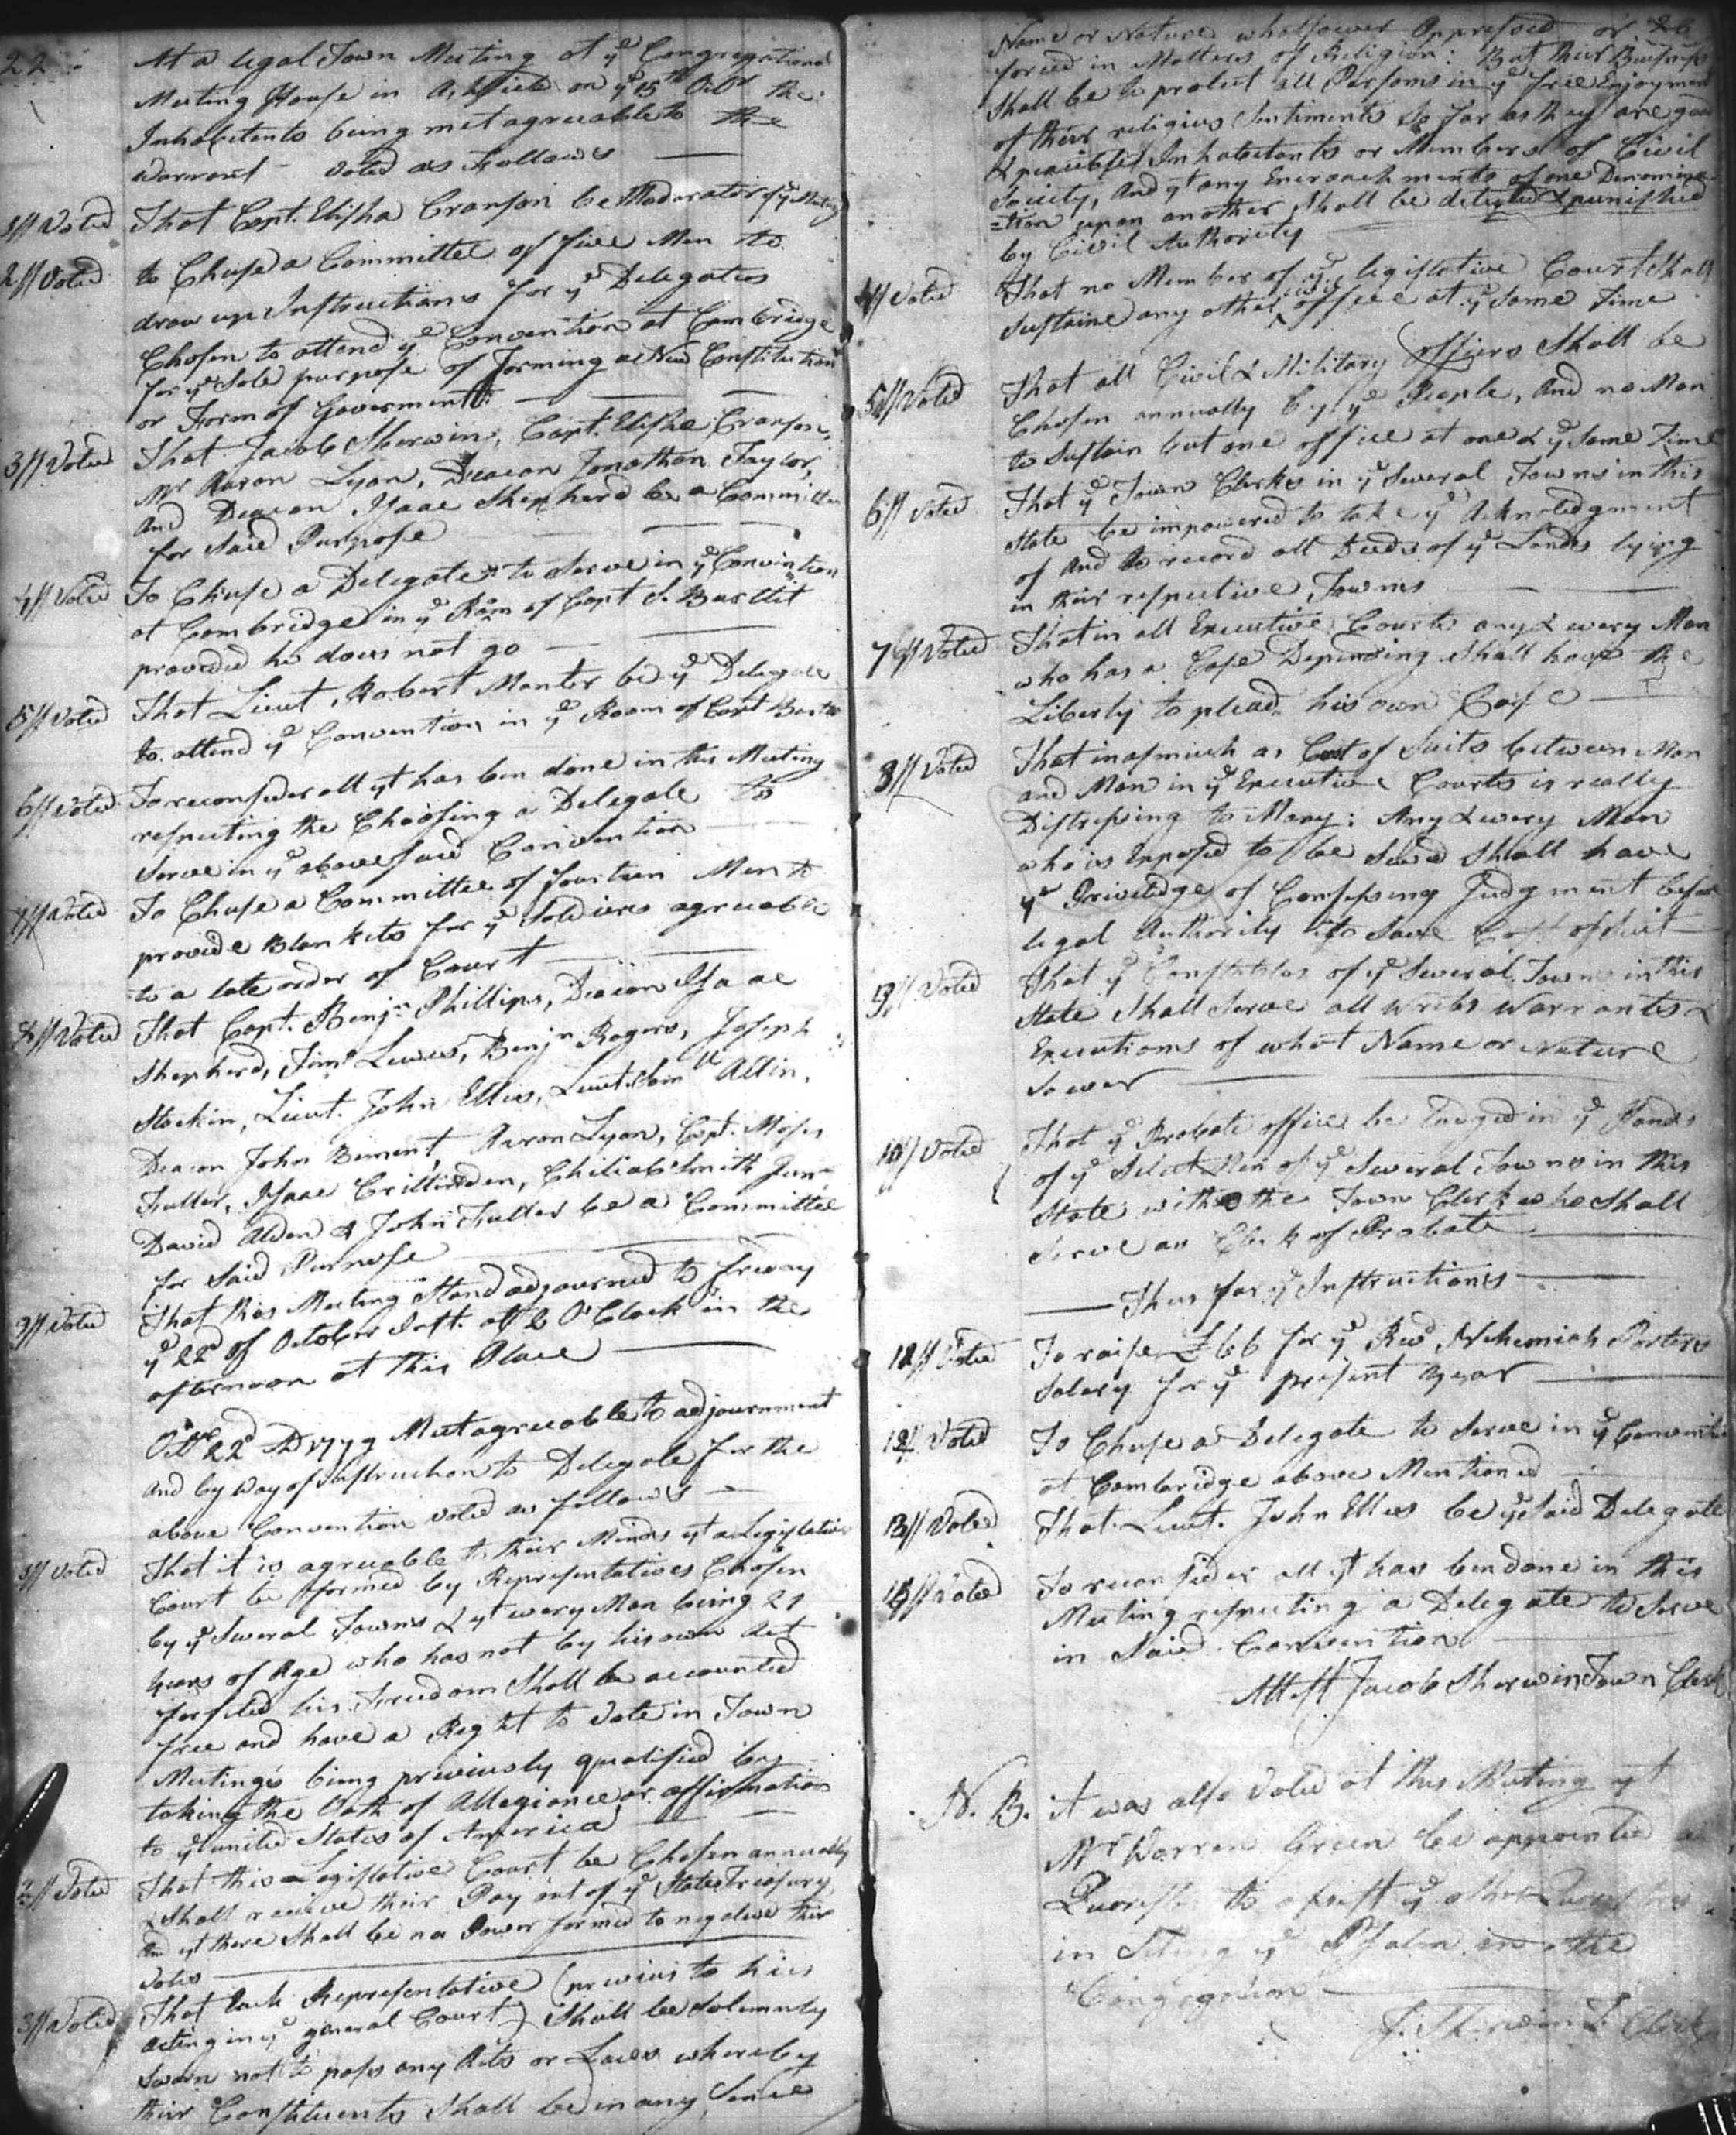 22
At a legal Town Meeting at yͤ Congregational
Meeting House in Ashfield on yͤ 15th Octr the
Inhabitents being met agreeable to the
Warrant - Voted as Follows
1ff Voted That Capt. Elisha Cranson be Moderator of yͤ Meeting
2ff Voted to Chuse a Committee of five Men to
draw up Instructions for yͤ Delegates
Chosen to attend yͤ Convention at Cambridge
for yͤ Sole purpose of forming a New Constitution
or Form of Goverment
3ff Voted That Jacob Sherwin, Capt. Elisha Cranson,
Mr Aaron Lyon, Deacon Jonathan Taylor,
and Deacon Isaac Shepherd be a Committee
for Said Purpose
4ff Voted To Chuse a Delegate to Serve in yͤ Convention
at Cambridge in yͤ Room of Capt S. Bartlit
provided he does not go
5ff Voted That Lieut. Robert Manter be yͤ Delegate
to attend yͤ Convention in yͤ Room of Capt Bartlit
6ff Voted To reconsider all yt has ben done in this Meeting
respecting the Choosing a Delegate to
Serve in yͤ above said Convention
7ff Voted To Chuse a Committee of fourteen Men to
provide Blankets for yͤ Soldiers agreuable
to a late order of Court
8ff Voted That Capt. Benjn Phillips, Deacon Isaac
Shepherd, Timo Lewis, Benjn Rogers, Joseph
Stockin, Lieut. John Ellis, Lieut Saml Allin,
Deacon John Biment, Aaron Lyon, Capt. Moses
Fuller, Isaac Crittenden, Chiliab Smith Junr
David Alden & John Fuller be a Committee
for Said Purpose
9ff Voted That this Meeting Stand adjourned to
yͤ 22d of October Inst. att 2 O'Clock in the
afternoon at this Place
Octr 22d AD 1779 Met agreuable to adjournment
and by Way of Instruction to Delegate for the
above Convention voted as follows
1ff Voted That it is agreuable to their Minds yt a Legislative
Court be formed by Representatives Chosen
by yͤ Several Towns & yt every Man being 21
years of Age who has not by his own Act
forfited his Freedom Shall be accounted
free and have a Right to Vote in Town
Meetings being previously qualified by
taking the Oath of Allegiance or affirmation
to yͤ united States of America
2ff Voted That this Legislative Court be Chosen annually
& Shall receive their Pay out of yͤ State Treasury
and yt there Shall be no Power formed to negative their
Votes
3ff Voted That Each Representative (previus to his
acting in yͤ general Court) Shall be Solemnly
Sworn not to pass any Acts or Laws whereby
their Constituents Shall be in any Sence
Name or Nature whatsoever Oppressed or
forced in Matters of Religion: But their Buisness
Shall be to protect all Persons in yͤ free Enjoyment
of their religius Sentiments So far as they are good
& peacible Inhabetants or Members of Civil
Society, and yt any Encroachments of one Denomina-
=tion upon another Shall be detected & punished
by Civil Authority
4ff Voted That no Member of yͤ legislative Court Shall
Sustaine any other civil office at yͤ Same Time
5ff Voted That all Civil & Military officers Shall be
Chosen annually by yͤ People, and no Man
to Sustain but one office at one & yͤ Same Time
6ff Voted That yͤ Town Clerks in yͤ Several Towns in this
State be impowered to take yͤ Acknoledgment
of and to record all Deeds of yͤ Lands lying
in their respective Towns
7ff Voted That in all Executive Courts any & every Man
who has a Case Depending Shall have the
Liberty to plead his own Case
8ff Voted That inasmuch as Cost of Suits between Man
and Man in yͤ Executive Courts is really
Distressing to Many: Any & every Man
who is Exposed to be Sued Shall have
yͤ Priviledge of Confessing Judgment before
legal Authority to Save Cost of Suit
9ff Voted That yͤ Constables of yͤ Several Towns in this
State Shall Serve all writs Warrants &
Executions of what Name or Nature
So ever
10ff Voted That yͤ Probate office be lodged in yͤ Hands
of yͤ Select Men of yͤ Several Towns in this
State with the Town Clerk who Shall
Serve as Clerk of Probate
Thus far yͤ Instructions
11ff Voted To raise £66 for yͤ Revd Nehemiah Porters
Salery for yͤ present year
12ff Voted To Chuse a Delegate to Serve in yͤ Convention
at Cambridge above Mentioned
13ff Voted That Lieut. John Ellis be yͤ Said Delegate
14ff Voted To reconsider all yt has ben done in this
Meeting respecting a Delegate to Serve
in Said Convention
Attest Jacob Sherwin Town Clerk
N. B. it was also Voted at this Meeting yt
Mr Warren Green be appointed a
Quorister to assist yͤ other Quoristers
in Seting yͤ Psalm in the
Congregation
J. Sherwin T. Clerk